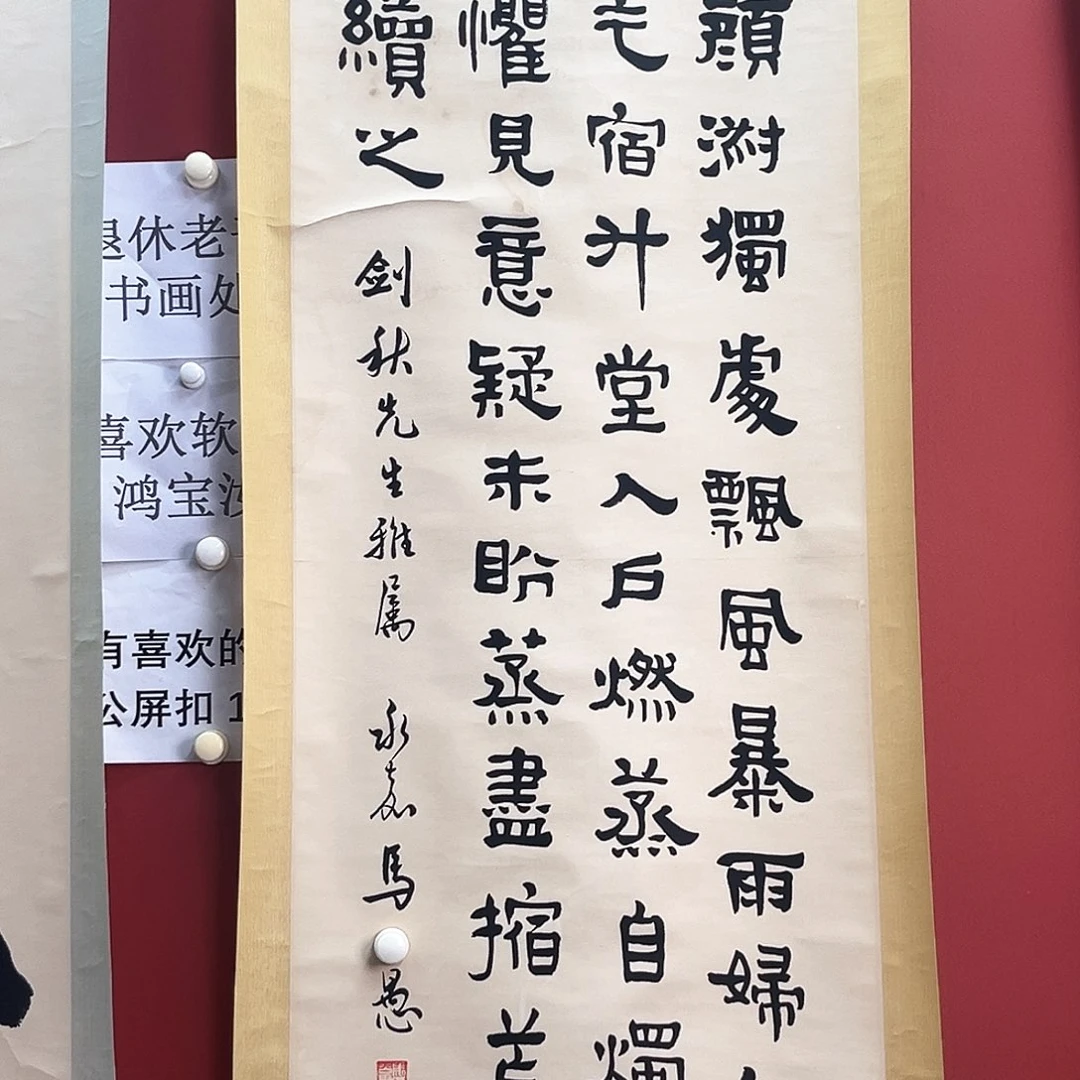 顏淑獨處飄風暴雨婦
乞宿升堂入戶燃蒸自燭
懼見意疑未盼蒸盡摍
續之
剑秋先生雅属 永嘉馬愚
退休老
书画处
喜欢软
鸿宝
有喜欢的
公屏扣 1